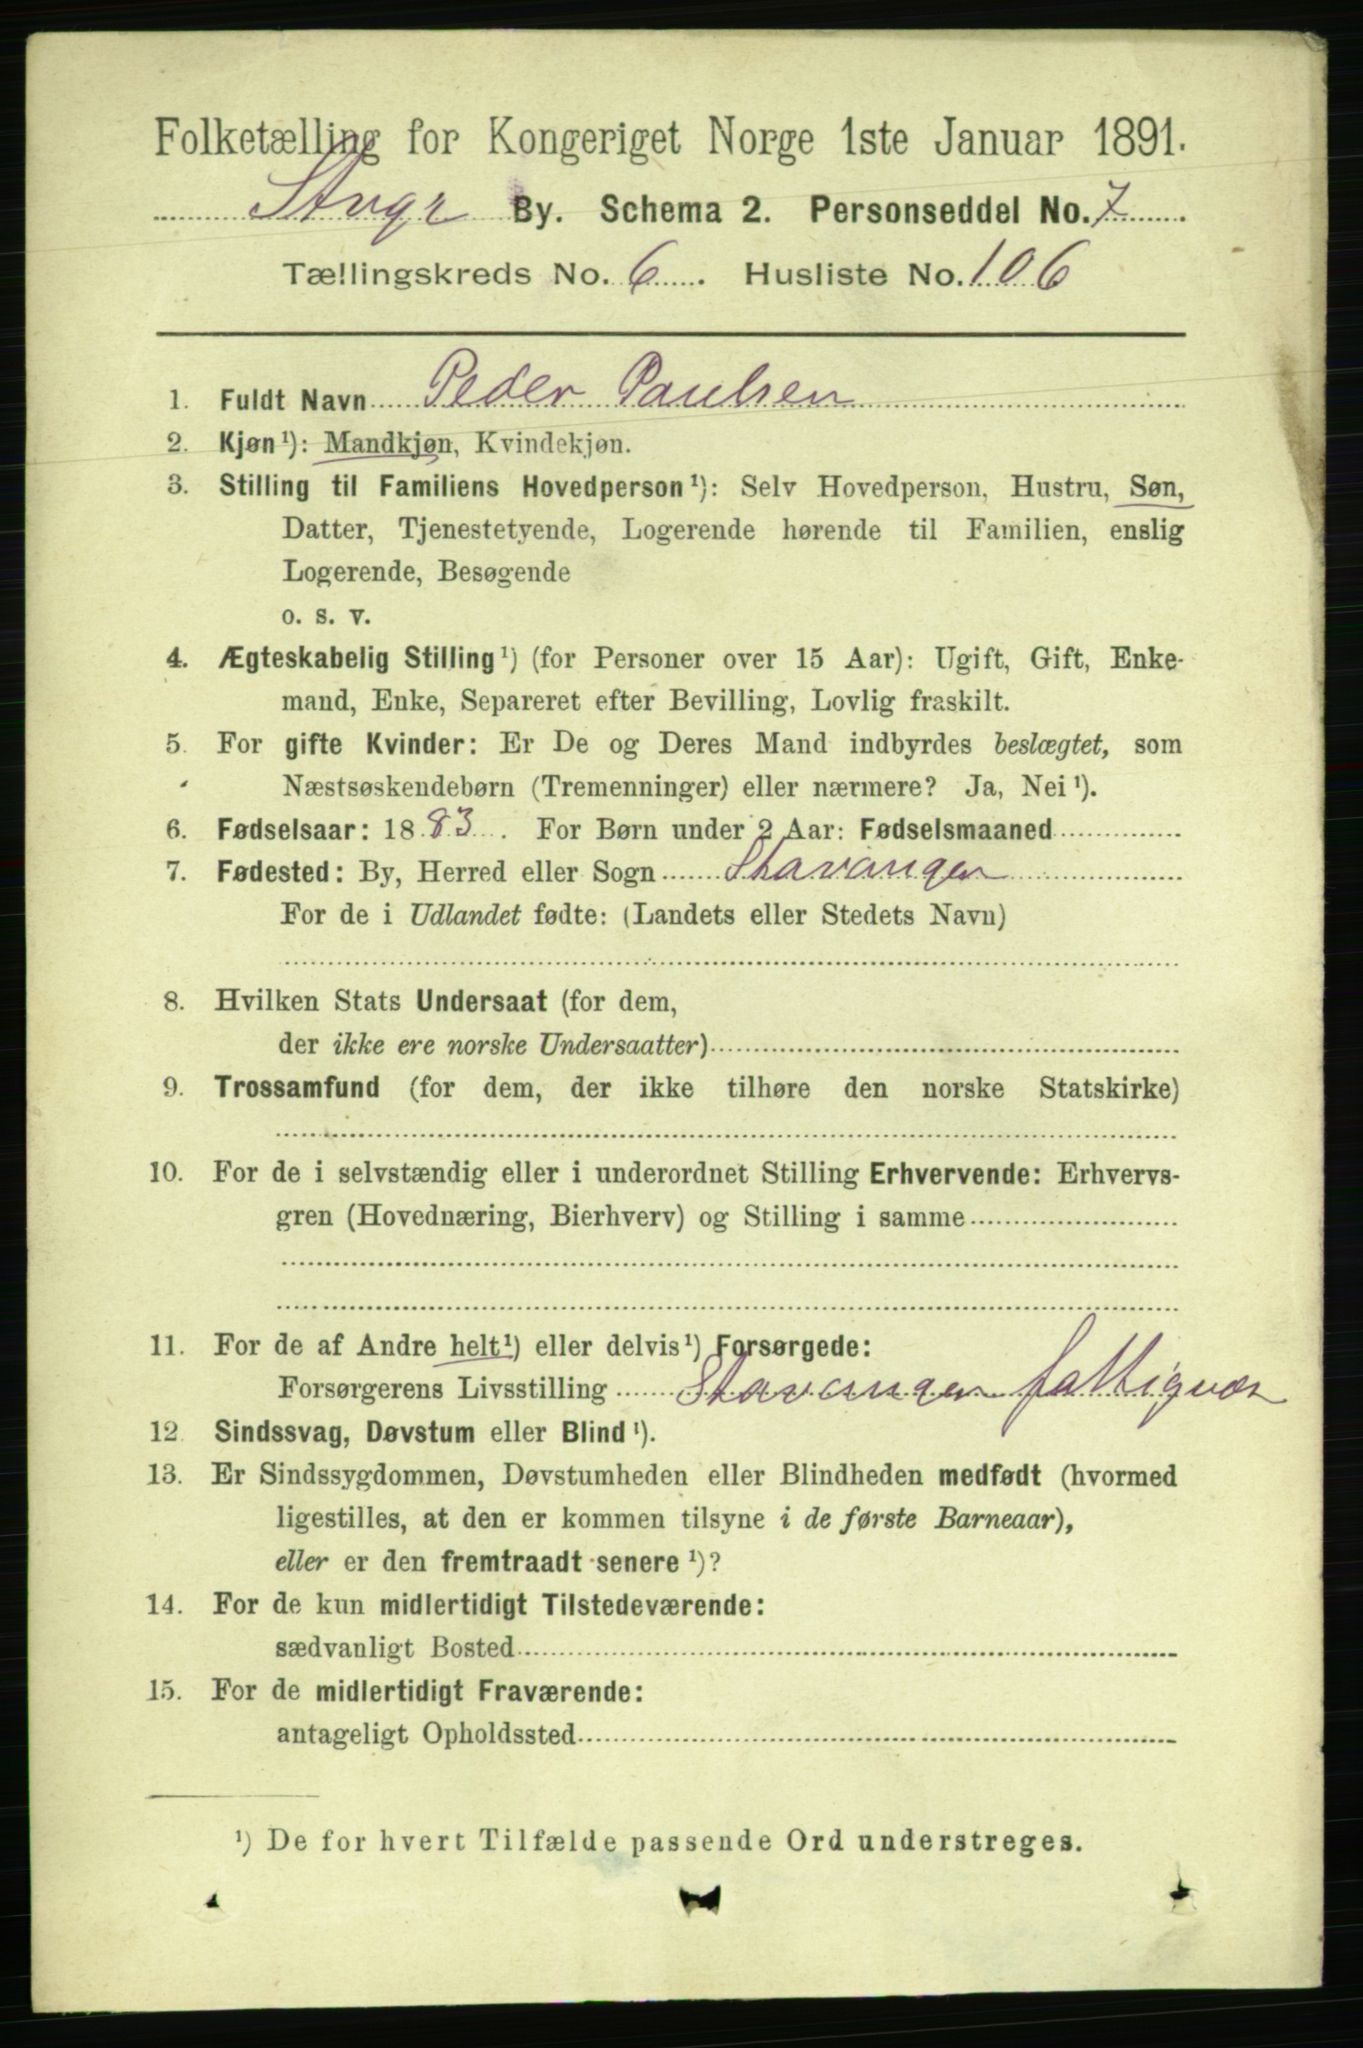 Folketælling for Kongeriget Norge 1ste Januar 1891.
Stvgr By. Schema 2. Personseddel No. 7
Tællingskreds No. 6. Husliste No. 106
1. Fuldt Navn Peder Paulsen
2. Kjøn¹): Mandkjøn, Kvindekjøn.
3. Stilling til Familiens Hovedperson¹): Selv Hovedperson, Hustru, Søn,
Datter, Tjenestetyende, Logerende hørende til Familien, enslig
Logerende, Besøgende
o. s. v.
4. Ægteskabelig Stilling¹) (for Personer over 15 Aar): Ugift, Gift, Enke-
mand, Enke, Separeret efter Bevilling, Lovlig fraskilt.
5. For gifte Kvinder: Er De og Deres Mand indbyrdes beslægtet, som
Næstsøskendebørn (Tremenninger) eller nærmere? Ja, Nei¹).
6. Fødselsaar: 1883. For Børn under 2 Aar: Fødselsmaaned
7. Fødested: By, Herred eller Sogn Stavanger
For de i Udlandet fødte: (Landets eller Stedets Navn)
8. Hvilken Stats Undersaat (for dem,
der ikke ere norske Undersaatter)
9. Trossamfund (for dem, der ikke tilhøre den norske Statskirke)
10. For de i selvstændig eller i underordnet Stilling Erhvervende: Erhvervs-
gren (Hovednæring, Bierhverv) og Stilling i samme
11. For de af Andre helt¹) eller delvis¹) Forsørgede:
Forsørgerens Livsstilling Stavanger fattigvæs
12. Sindssvag, Døvstum eller Blind¹).
13. Er Sindssygdommen, Døvstumheden eller Blindheden medfødt (hvormed
ligestilles, at den er kommen tilsyne i de første Barneaar),
eller er den fremtraadt senere¹)?
14. For de kun midlertidigt Tilstedeværende:
sædvanligt Bosted
15. For de midlertidigt Fraværende:
antageligt Opholdssted
¹) De for hvert Tilfælde passende Ord understreges.